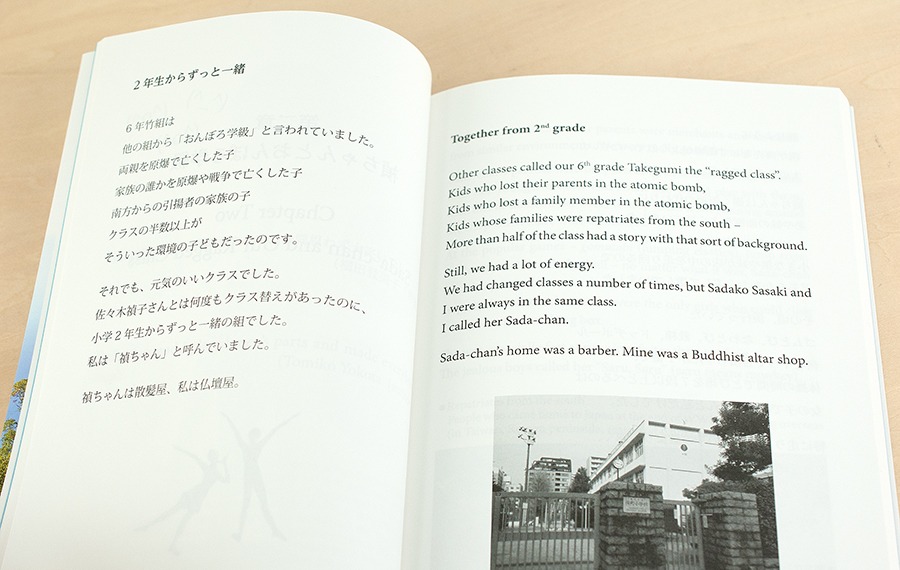 2年生からずっと一緒
6年竹組は
他の組から「おんぼろ学級」と言われていました。
両親を原爆で亡くした子
家族の誰かを原爆や戦争で亡くした子
南方からの引揚者の家族の子
クラスの半数以上が
そういった環境の子どもだったのです。
それでも、元気のいいクラスでした。
佐々木禎子さんとは何度もクラス替えがあったのに、
小学2年生からずっと一緒の組でした。
私は「禎ちゃん」と呼んでいました。
禎ちゃんは散髪屋、私は仏壇屋。
Together from 2nd grade
Other classes called our 6th grade Takegumi the “ragged class”.
Kids who lost their parents in the atomic bomb,
Kids who lost a family member in the atomic bomb,
Kids whose families were repatriates from the south –
More than half of the class had a story with that sort of background.
Still, we had a lot of energy.
We had changed classes a number of times, but Sadako Sasaki and
I were always in the same class.
I called her Sada-chan.
Sada-chan’s home was a barber. Mine was a Buddhist altar shop.